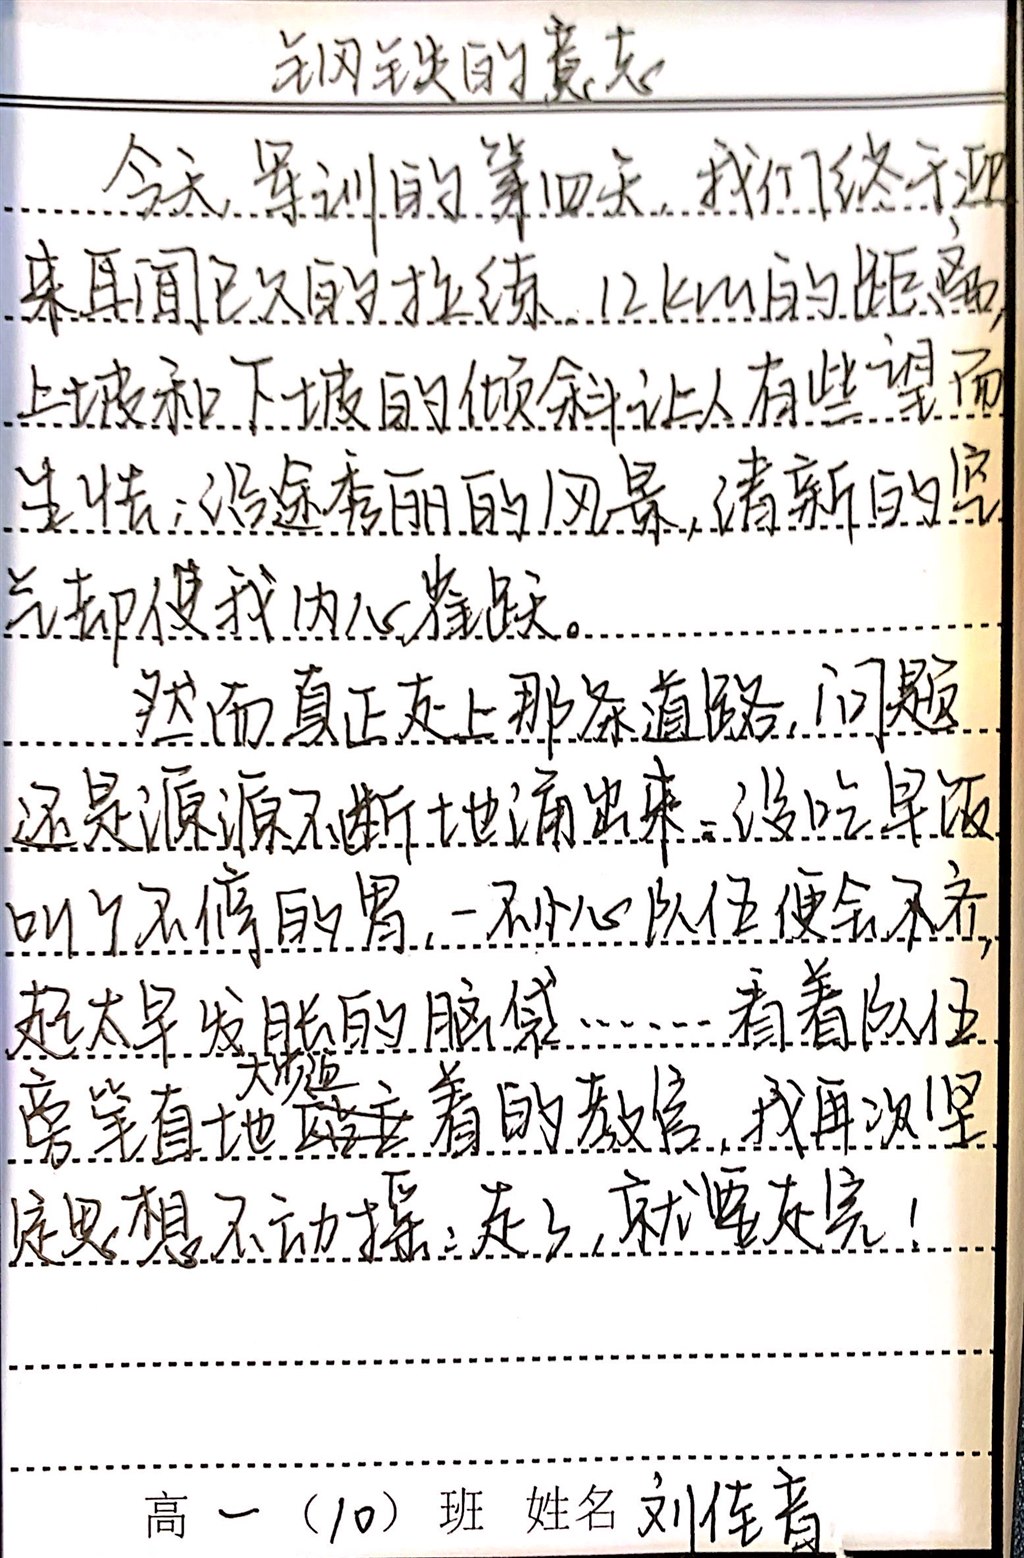 钢铁的意志
今天,军训的第四天,我们终于迎
来耳闻已久的拉练。12km的距离,
上坡和下坡的倾斜让人有些望而
生怯;沿途秀丽的风景,清新的空
气却使我内心雀跃。
然而真正走上那条道路,问题
还是源源不断地涌出来:没吃早饭
叫个不停的胃,一不小心队伍便会不齐,
起太早发胀的脑袋……看着队伍
大步迈
旁笔直地着的教官,我再次坚
定思想不动摇:走了,就要走完!
高一(10)班 姓名 刘佳音